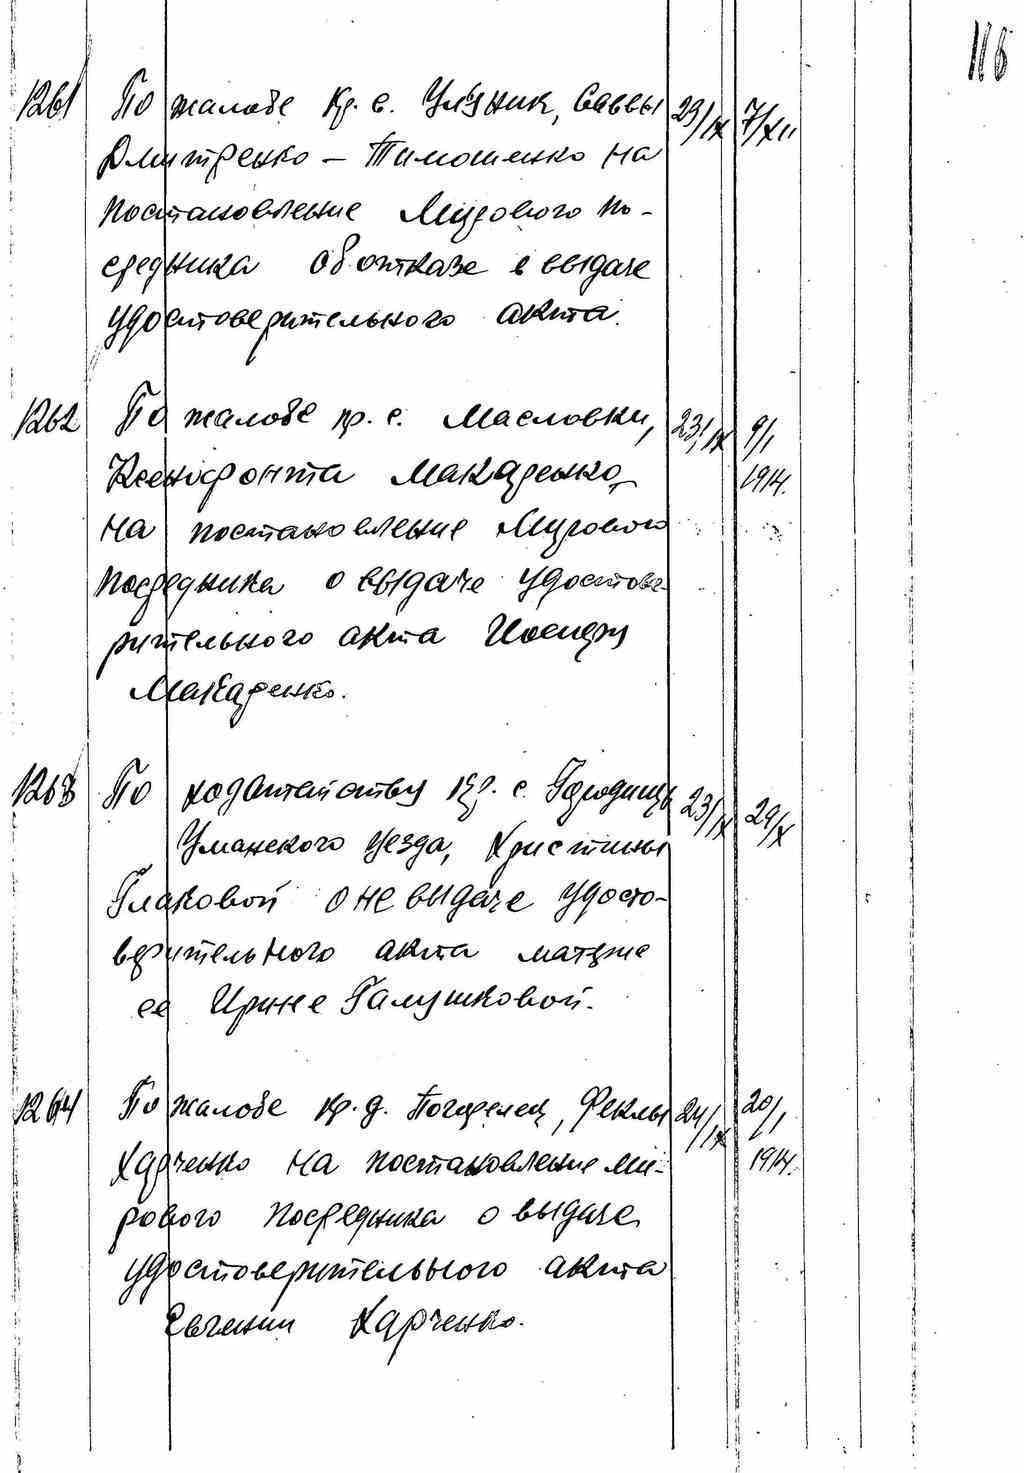 116
1261 По жалобе кр. с. Улзник, Саввы 23/IX 7/XII
Дмитренко – Тимошенко на
постановление Мирового по-
средника об отказе в выдаче
удостоверительного акта.
1262 По жалобе кр. с. Масловки, 23/IX 9/I
Ксенофонта Макаренко, 1914.
на постановление Мирового
посредника о выдаче удостове-
рительного акта Иосифу
Макаренко.
1263 По ходатайству кр. с. Городницы 23/IX 29/X
Уманского уезда, Христины
Глаковой о не выдаче удосто-
верительного акта матери
ее Ирине Галушковой.
1264 По жалобе кр. д. Погорелец, Феклы 24/IX 20/I
Харченко на постановление Ми- 1914.
рового посредника о выдаче
удостоверительного акта
Евгении Харченко.